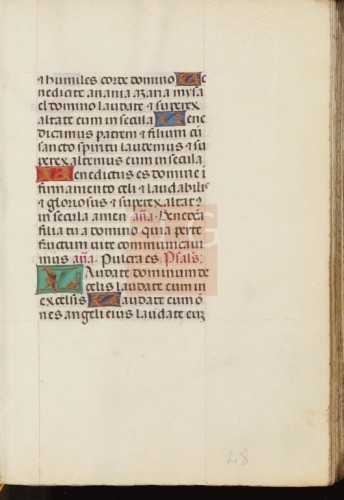 ⁊ humiles corde domino Be
nedicite anania azaria mysa
el domino laudate ⁊ superex
altate eum in secula Bene
dicimus patrem ⁊ filium cū
sancto spiritu laudemus ⁊ su
perexaltemus eum in secula
Benedictus es domine ī
firmamento celi ⁊ laudabilis
⁊ gloriosus ⁊ superexaltat⁹
in secula amen aña. Benedca
filia tu a domino quia per te
fructum vite communicaui
mus aña. Pulcra es Psals:
Laudate dominum de
celis laudate eum in
excelsis Laudate eum ō
nes angeli eius laudate eū
48